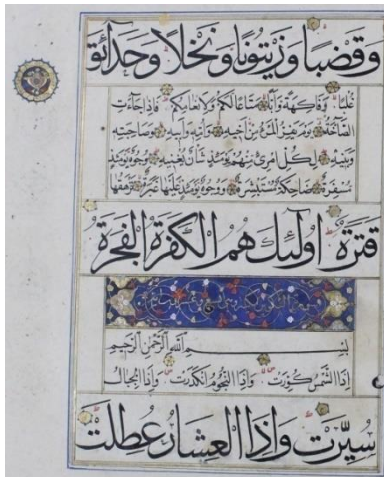 وَقَضْبًا وَزَيْتُونًا وَنَخْلًا وَحَدَآئِقَ
غُلْبًا وَفَاكِهَةً وَأَبًّا مَتَاعًا لَكُمْ وَلِأَنْعَامِكُمْ فَإِذَا جَاءَتِ
الصَّاخَّةُ يَوْمَ يَفِرُّ الْمَرْءُ مِنْ أَخِيهِ وَأُمِّهِ وَأَبِيهِ وَصَاحِبَتِهِ
وَبَنِيهِ لِكُلِّ امْرِئٍ مِنْهُمْ يَوْمَئِذٍ شَأْنٌ يُغْنِيهِ وُجُوهٌ يَوْمَئِذٍ
مُسْفِرَةٌ ضَاحِكَةٌ مُسْتَبْشِرَةٌ وَوُجُوهٌ يَوْمَئِذٍ عَلَيْهَا غَبَرَةٌ تَرْهَقُهَا
قَتَرَةٌ اُولَٓئِكَ هُمُ الْكَفَرَةُ الْفَجَرَةُ
بِسْمِ اللَّهِ الرَّحْمَنِ الرَّحِيمِ
إِذَا الشَّمْسُ كُوِّرَتْ وَإِذَا النُّجُومُ انْكَدَرَتْ وَإِذَا الْجِبَالُ
سُيِّرَتْ وَإِذَا الْعِشَارُ عُطِّلَتْ